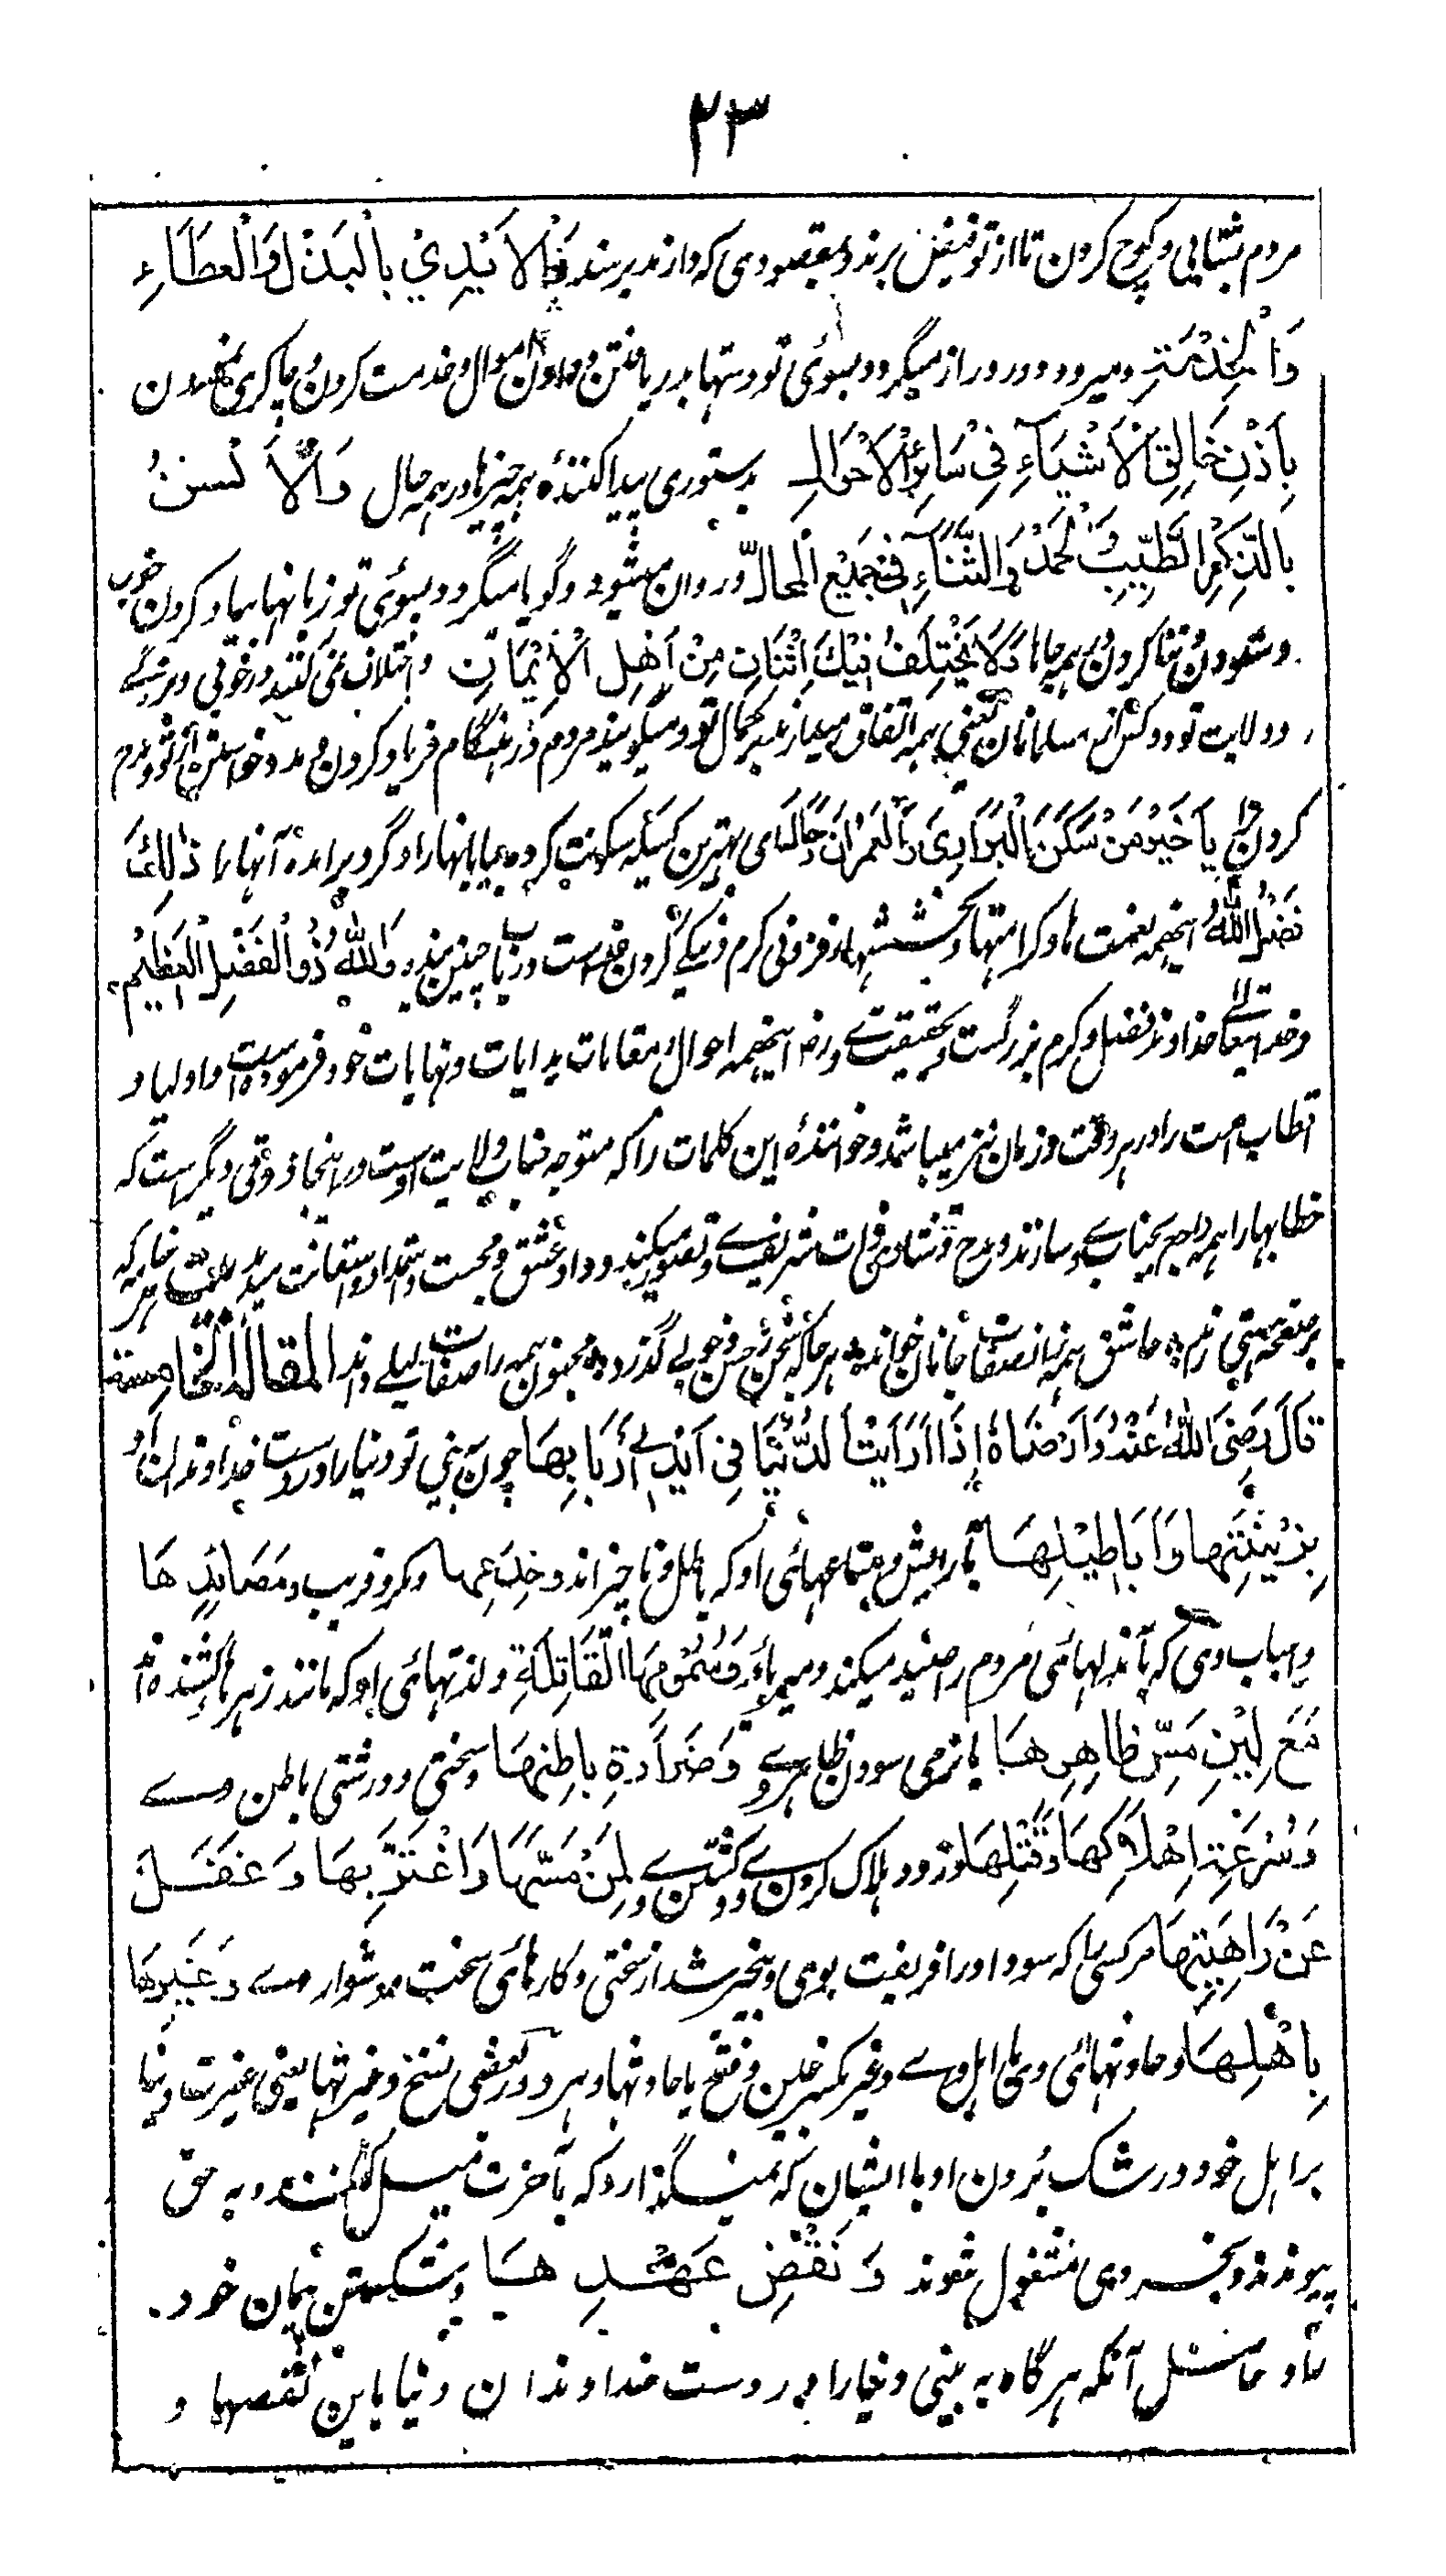 ۲۳
مردم بشتابی و کوچ کردن تا از تو فیض برند و بمقصودی که دارند برسند وَالْاَیْدِیْ بِالْبَذْلِ وَالْعَطَاءِ
وَالْخِدْمَتِهِ و میرود و دور و دراز میگردد بسوئی تو دستها بدر یافتن و دادن اموال و خدمت کردن و چاکری
بِاِذْنِ خَالِقِ الْاَشْیَآءِ فِیْ سَائِرِ الْاَحْوَالِ بدستوری پیدا کنندۂ همه چیزها در همه حال وَالْاَلْسُنُ
بِالذِّکْرِ الطَّیِّبِ وَالْحَمْدِ وَالثَّنَآءِ فِیْ جَمِیْعِ الْمَحَالِّ و روان میشود و گویا میگردد بسوئی تو زبانها بیاد کردن خوب
و ستودن و ثنا کردن بهمه جاها وَلَا یَخْتَلِفُ فِیْكَ اِثْنَانِ مِنْ اَهْلِ الْاِیْمَانِ و اختلاف نمی کنند در خوبی و بزرگی
و ولایت تو دو کس از مسلمانان یعنی همه اتفاق میدارند بر کمال تو و میگویند مردم در هنگام فریاد کردن و مدد خواستن از تو و مدح
کردن ترا یَا خَیْرَ مَنْ سَکَنَ الْبَرَارِیَ وَالْعُمْرَانَ وَجَالَهَا ای بهترین کسیکه سکونت کرده بیابانها را و گرد برامده آنها را ذٰلِكَ
فَضْلُ اللهِ اینهمه نعمت ها و کرامتها و بخششها و فزونی کرم و نیکی کردن خداست در باب چنین بنده وَاللهُ ذُو الْفَضْلِ الْعَظِیْمِ
و خدا تعالی خداوند فضل و کرم بزرگست و بحقیقت وی رض اینهمه احوال و مقامات بدایات و نهایات خود فرموده است و اولیا و
اقطاب امت را در هر وقت و زمان نیز میباشد و خوانندۂ این کلمات را که متوجه جناب ولایت اوست در اینجا ذوقی دیگر است که
خطابها را همه راجع بجناب وی سازند و مدح و ثنا در ذات شریف وی تصور میکند و داد عشق و محبت و استمداد و استعانت میدهد هر خامه که
بر صفحه هستی زنم * عاشق همه زان صفات جانان خواند * هر جا که سخن ز حسن و خوبی گذرد * مجنون همه را صفات لیلی داند المقالة الخامسة
قَالَ رَضِیَ اللهُ عَنْهُ وَاَرْضَاهُ اِذَا رَاَیْتَ الدُّنْیَا فِیْ اَیْدِیْ اَرْبَابِهَا چون به بینی تو دنیا را در دست خداوندان او
بِزِیْنَتِهَا وَاَبَاطِیْلِهَا با آرایش و متاعهائی او که باطل و ناچیز اند وَخِدَاعِهَا و مکر و فریب وَمَصَائِدِهَا
و اسباب وی که بآن دلهائی مردم را صید میکند و میرباید وَسُمُوْمِهَا الْقَاتِلَةِ و لذتهائی او که مانند زهرهائی کشنده اند
مَعَ لِیْنِ مَسِّ ظَاهِرِهَا با نرمی سودن ظاهر وی وَضَرَاوَةِ بَاطِنِهَا و سختی و درشتی باطن وے
وَسُرْعَةِ اِهْلَاکِهَا وَقَتْلِهَا و زود هلاک کردن وے و کشتن وے لِمَنْ مَسَّهَا وَاغْتَرَّ بِهَا وَغَفَلَ
عَنْ دَاهِیَتِهَا مر کسی را که سود او را و فریفت بوی و بیخبر شد از سختی و کارهائی سخت و دشوار وے وَغِیَرِهَا
بِاَهْلِهَا و حادثهائی وی با اهل وے و غیر بکسر غین و فتح یا حادثها و در بعضی نسخ و غیرتها یعنی غیرت دنیا
بر اهل خود و رشک بردن او با ایشان که نمیگذارد که بآخرت میل کنند و به حق
پیوندند و بجز وی مشغول شوند وَنَقْضِ عَهْدِهَا و شکستن پیمان خود
حاصل آنکه هر گاه به بینی دنیا را در دست خداوندان دنیا باین نقصها و